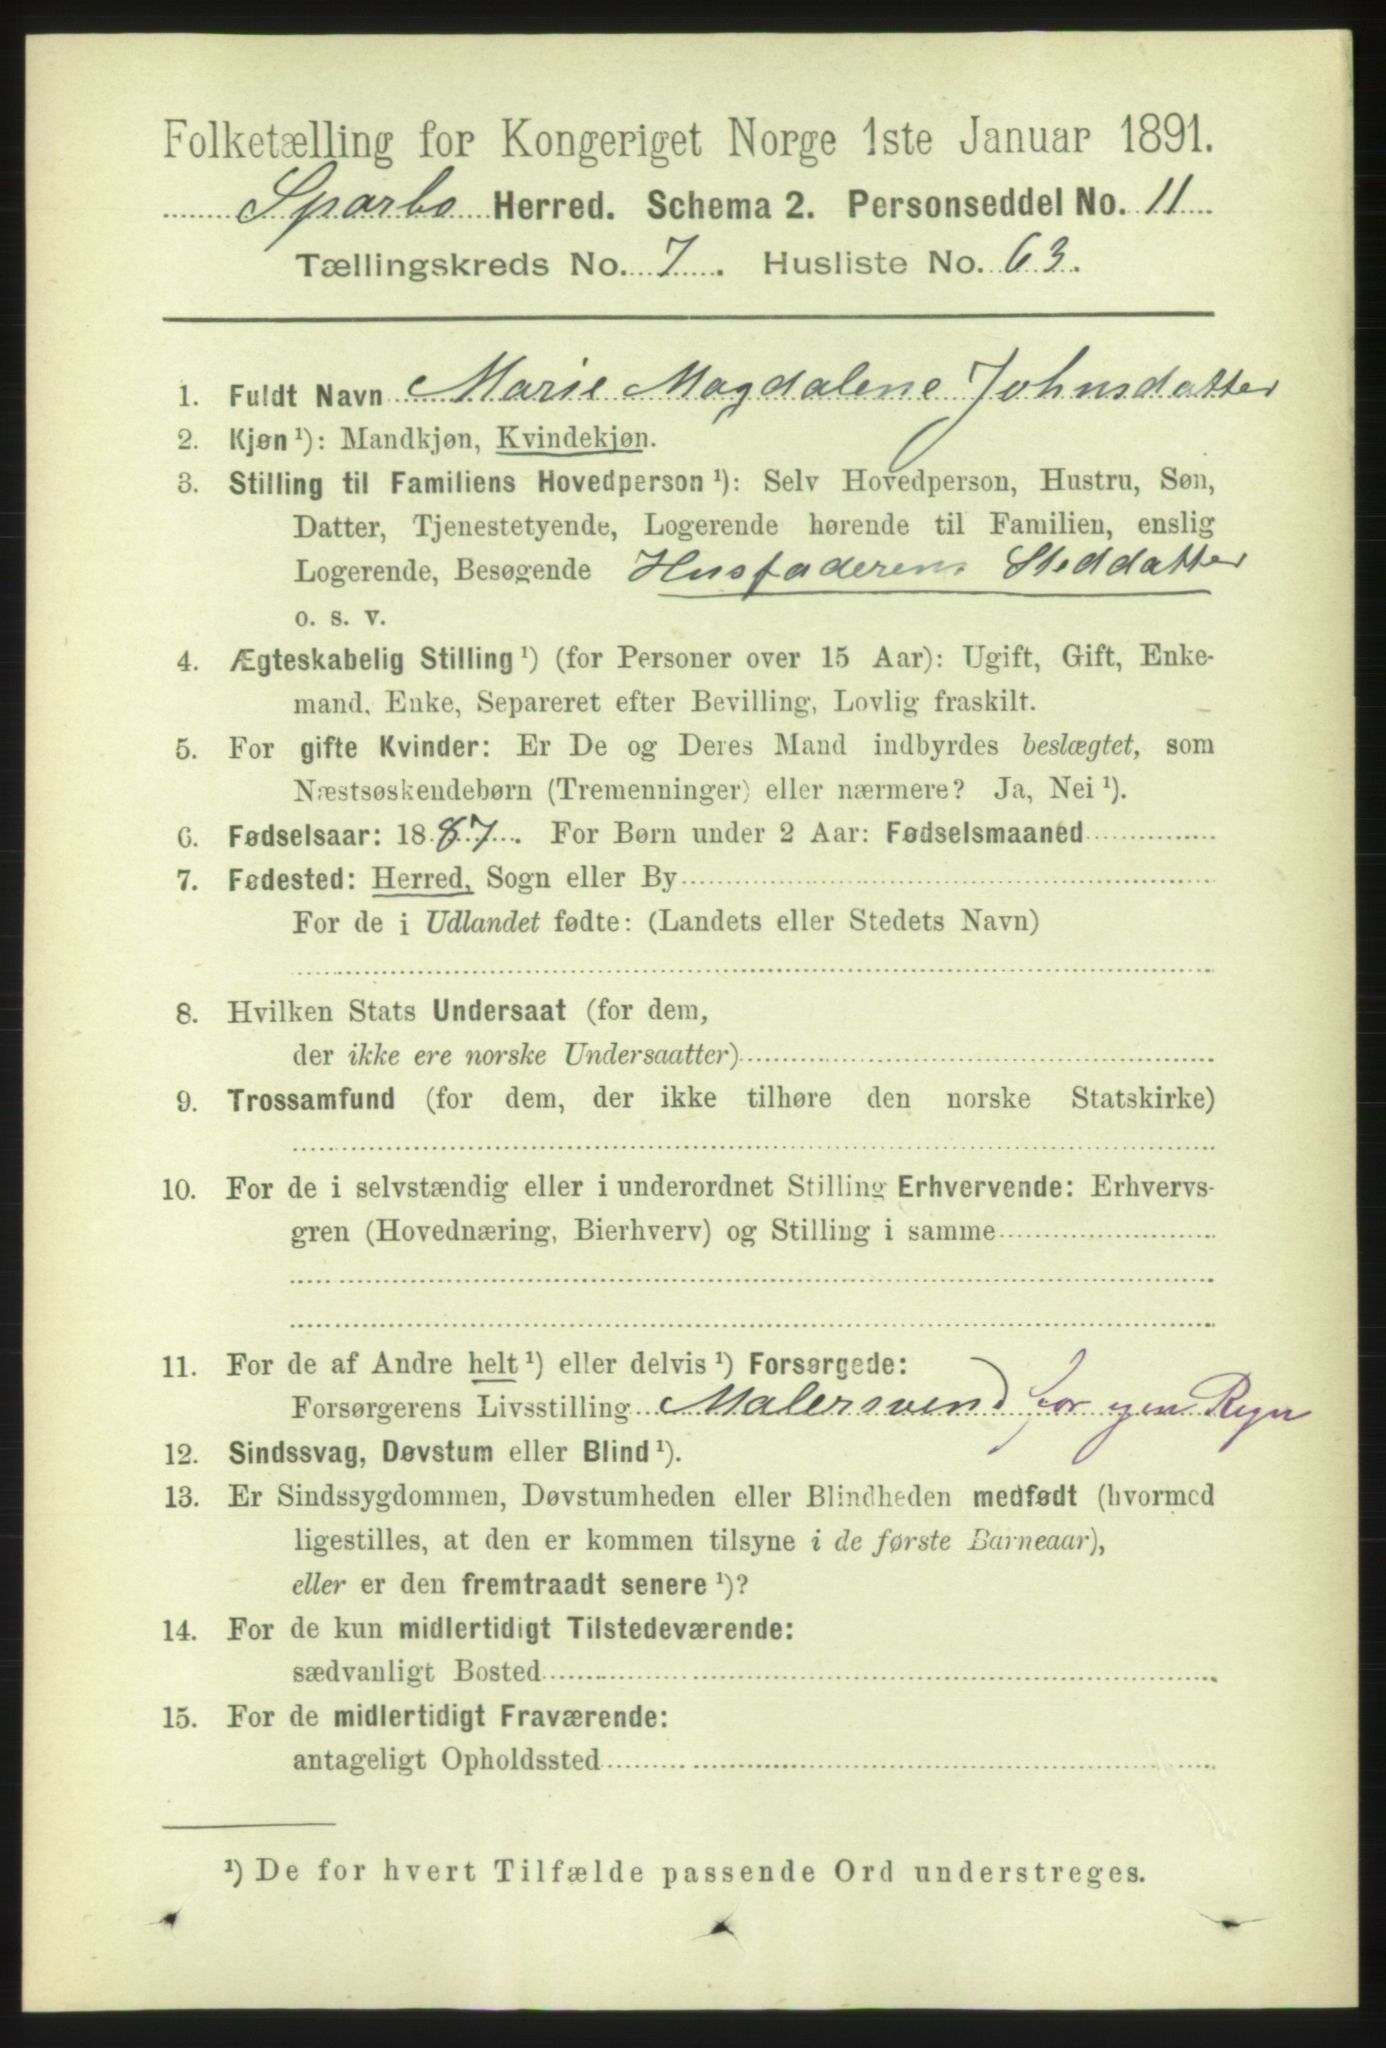 Folketælling for Kongeriget Norge 1ste Januar 1891.
Sparbo Herred. Schema 2. Personseddel No. 11
Tællingskreds No. 7. Husliste No. 63.
1. Fuldt Navn Marie Magdalene Johnsdatter
2. Kjøn ¹): Mandkjøn, Kvindekjøn.
3. Stilling til Familiens Hovedperson ¹): Selv Hovedperson, Hustru, Søn,
Datter, Tjenestetyende, Logerende hørende til Familien, enslig
Logerende, Besøgende Husfaderens Steddatter
o. s. v.
4. Ægteskabelig Stilling ¹) (for Personer over 15 Aar): Ugift, Gift, Enke-
mand, Enke, Separeret efter Bevilling, Lovlig fraskilt.
5. For gifte Kvinder: Er De og Deres Mand indbyrdes beslægtet, som
Næstsøskendebørn (Tremenninger) eller nærmere? Ja, Nei ¹).
6. Fødselsaar: 1887. For Børn under 2 Aar: Fødselsmaaned
7. Fødested: Herred, Sogn eller By
For de i Udlandet fødte: (Landets eller Stedets Navn)
8. Hvilken Stats Undersaat (for dem,
der ikke ere norske Undersaatter)
9. Trossamfund (for dem, der ikke tilhøre den norske Statskirke)
10. For de i selvstændig eller i underordnet Stilling Erhvervende: Erhvervs-
gren (Hovednæring, Bierhverv) og Stilling i samme
11. For de af Andre helt ¹) eller delvis ¹) Forsørgede:
Forsørgerens Livsstilling Malersvend for egen Regn
12. Sindssvag, Døvstum eller Blind ¹).
13. Er Sindssygdommen, Døvstumheden eller Blindheden medfødt (hvormed
ligestilles, at den er kommen tilsyne i de første Barneaar),
eller er den fremtraadt senere ¹)?
14. For de kun midlertidigt Tilstedeværende:
sædvanligt Bosted
15. For de midlertidigt Fraværende:
antageligt Opholdssted
¹) De for hvert Tilfælde passende Ord understreges.